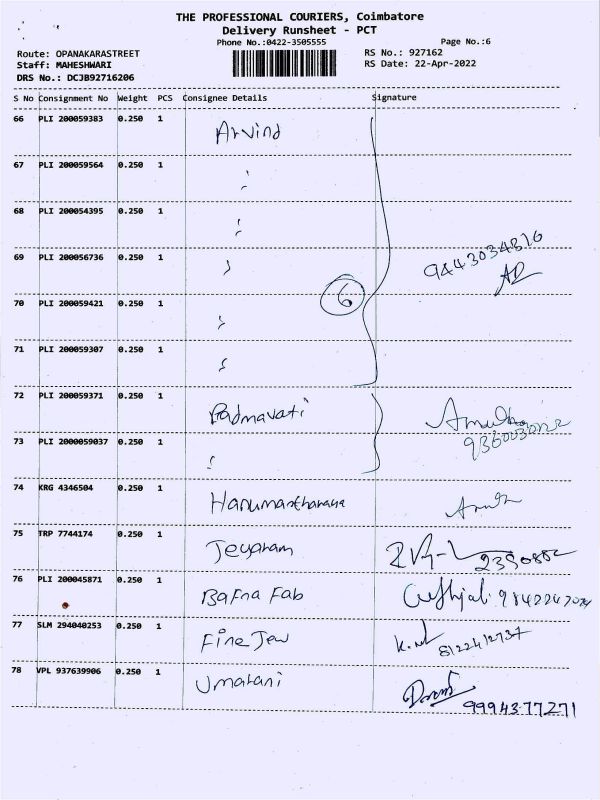 THE PROFESSIONAL COURIERS, Coimbatore
Delivery Runsheet - PCT
Phone No.:0422-3505555 Page No.:6
Route: OPANAKARASTREET RS No.: 927162
Staff: MAHESHWARI RS Date: 22-Apr-2022
DRS No.: DCJB92716206
S No Consignment No Weight PCS Consignee Details Signature
66 PLI 200059383 0.250 1 Arvind
67 PLI 200059564 0.250 1
68 PLI 200054395 0.250 1
69 PLI 200056736 0.250 1 9443034816
6
70 PLI 200059421 0.250 1
71 PLI 200059307 0.250 1
72 PLI 200059371 0.250 1 Padmavati
73 PLI 2000059037 0.250 1
74 KRG 4346504 0.250 1 Hanumantharaya
75 TRP 7744174 0.250 1 Jeyaram 2390882
76 PLI 200045871 0.250 1 Bafna Fab
77 SLM 294040253 0.250 1 Fine Jew 8122412737
78 VPL 937639906 0.250 1 Umarani
9994377271